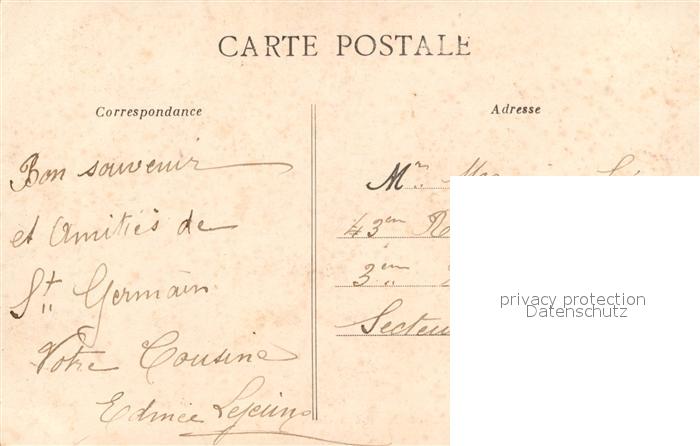 CARTE POSTALE
Correspondance
Adresse
Bon souvenir
et Amitiés de
St Germain
Votre Cousine
Edmée Lejeune
Mr
43em
3em
Secteu
privacy protection
Datenschutz